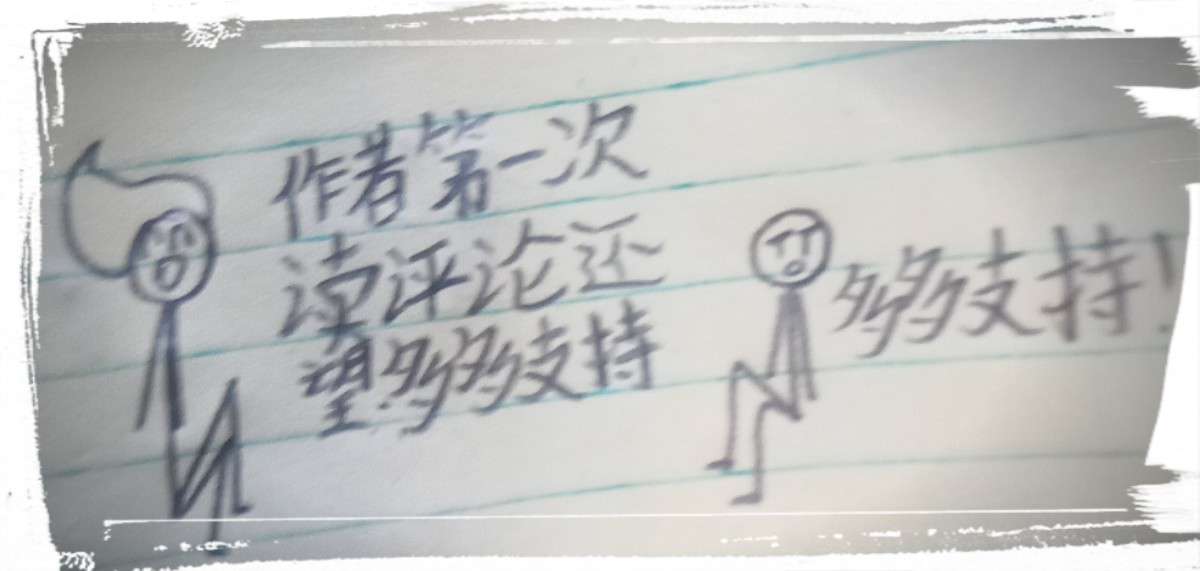 作者第一次
读评论还
望多多支持
多多支持!